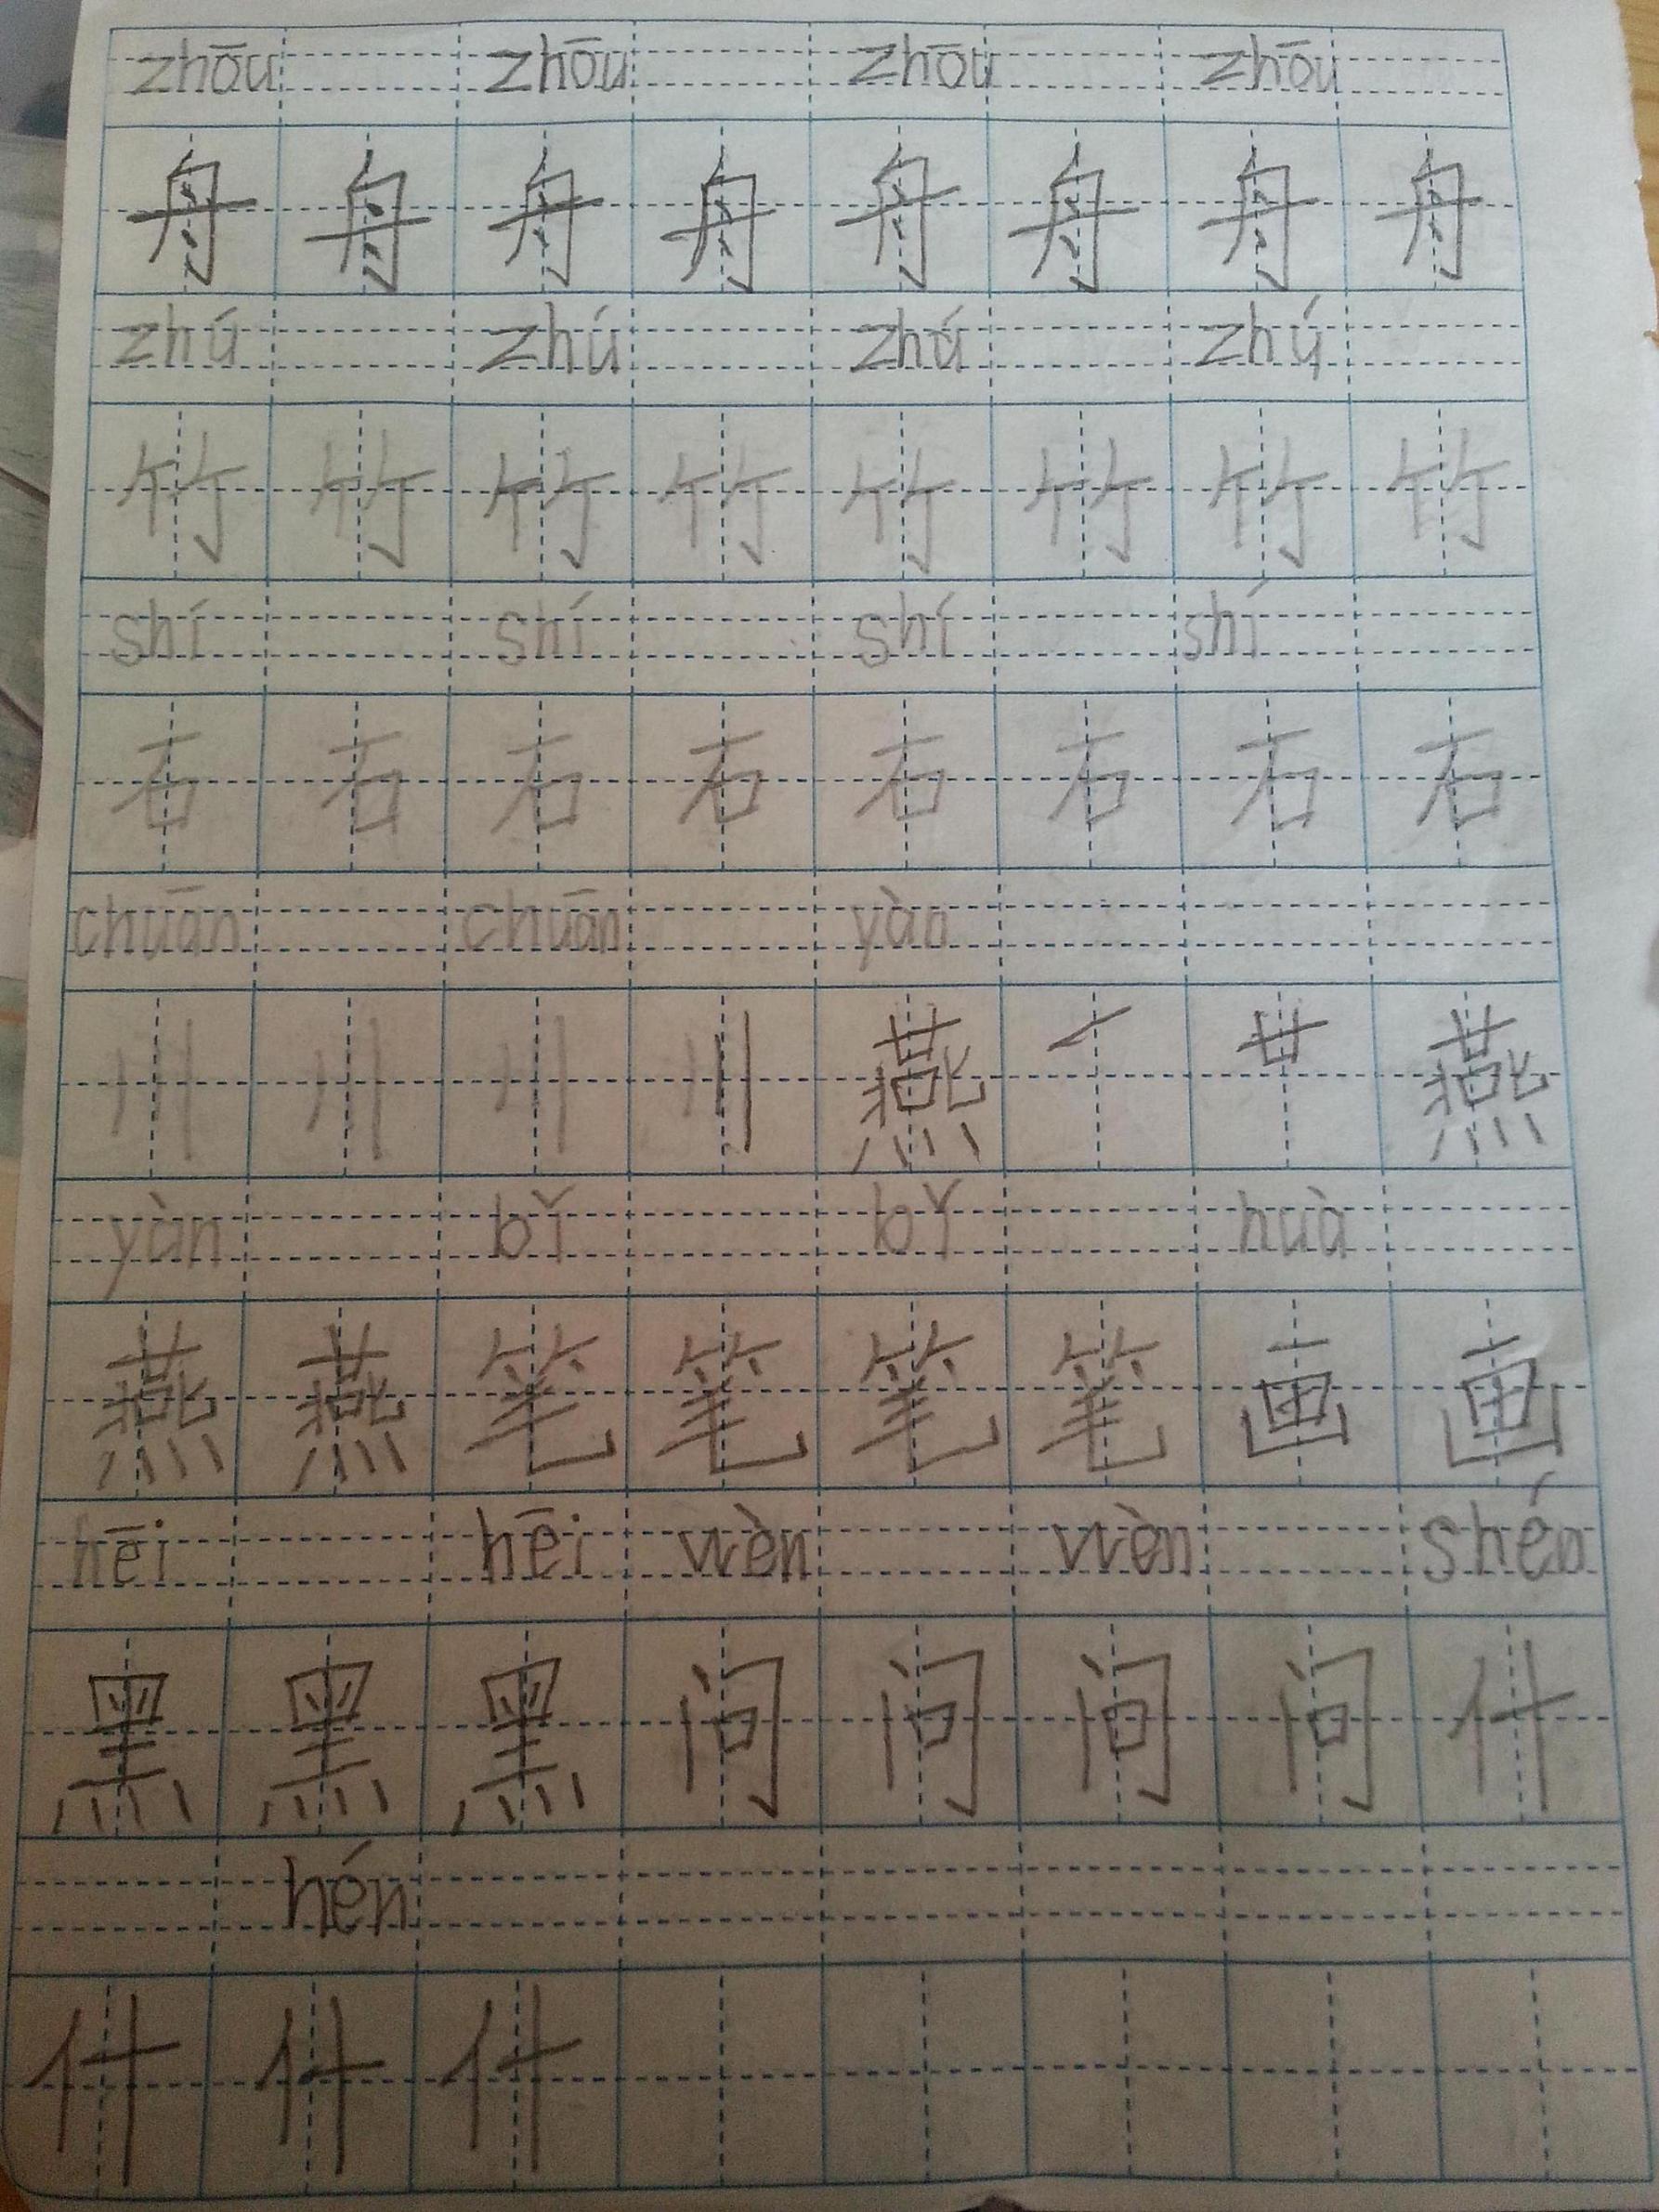 zhōu zhōu zhōu zhōu
舟 舟 舟 舟 舟 舟 舟 舟
zhú zhú zhú zhú
竹 竹 竹 竹 竹 竹 竹 竹
shí shí shí shí
石 石 石 石 石 石 石 石
chuān chuān yàn
川 川 川 川 燕 一 廿 燕
yàn bǐ bǐ huà
燕 燕 笔 笔 笔 笔 画 画
hēi hēi wèn wèn shén
黑 黑 黑 问 问 问 问 什
hén
什 什 什